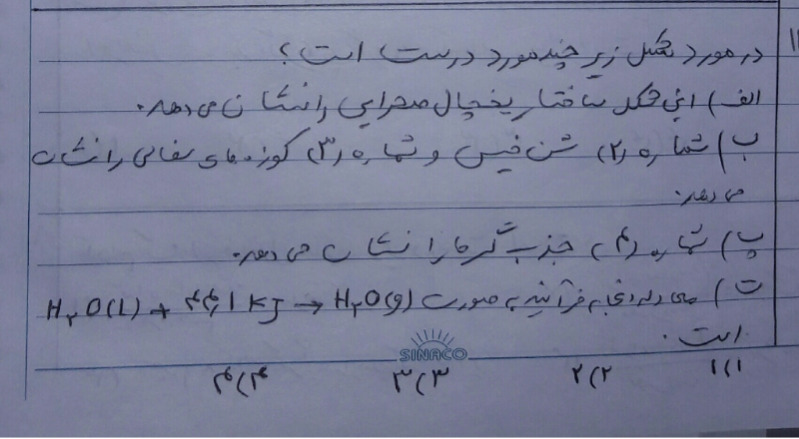 در مورد شکل زیر چند مورد درست است؟
الف) این شکل ساختار یخچال صحرایی را نشان می دهد.
ب) شماره (۲) شن خیس و شماره (۳) کوزه های سفالی را نشان
می دهد.
پ) شماره (۴) جذب گرما را نشان می دهد.
ت) معادله انجام فرآیند به صورت H۲O(l) + ۴۴٫۱ kJ → H۲O(g)
است.
SINACO
۱) ۱ ۲) ۲ ۳) ۳ ۴) ۴